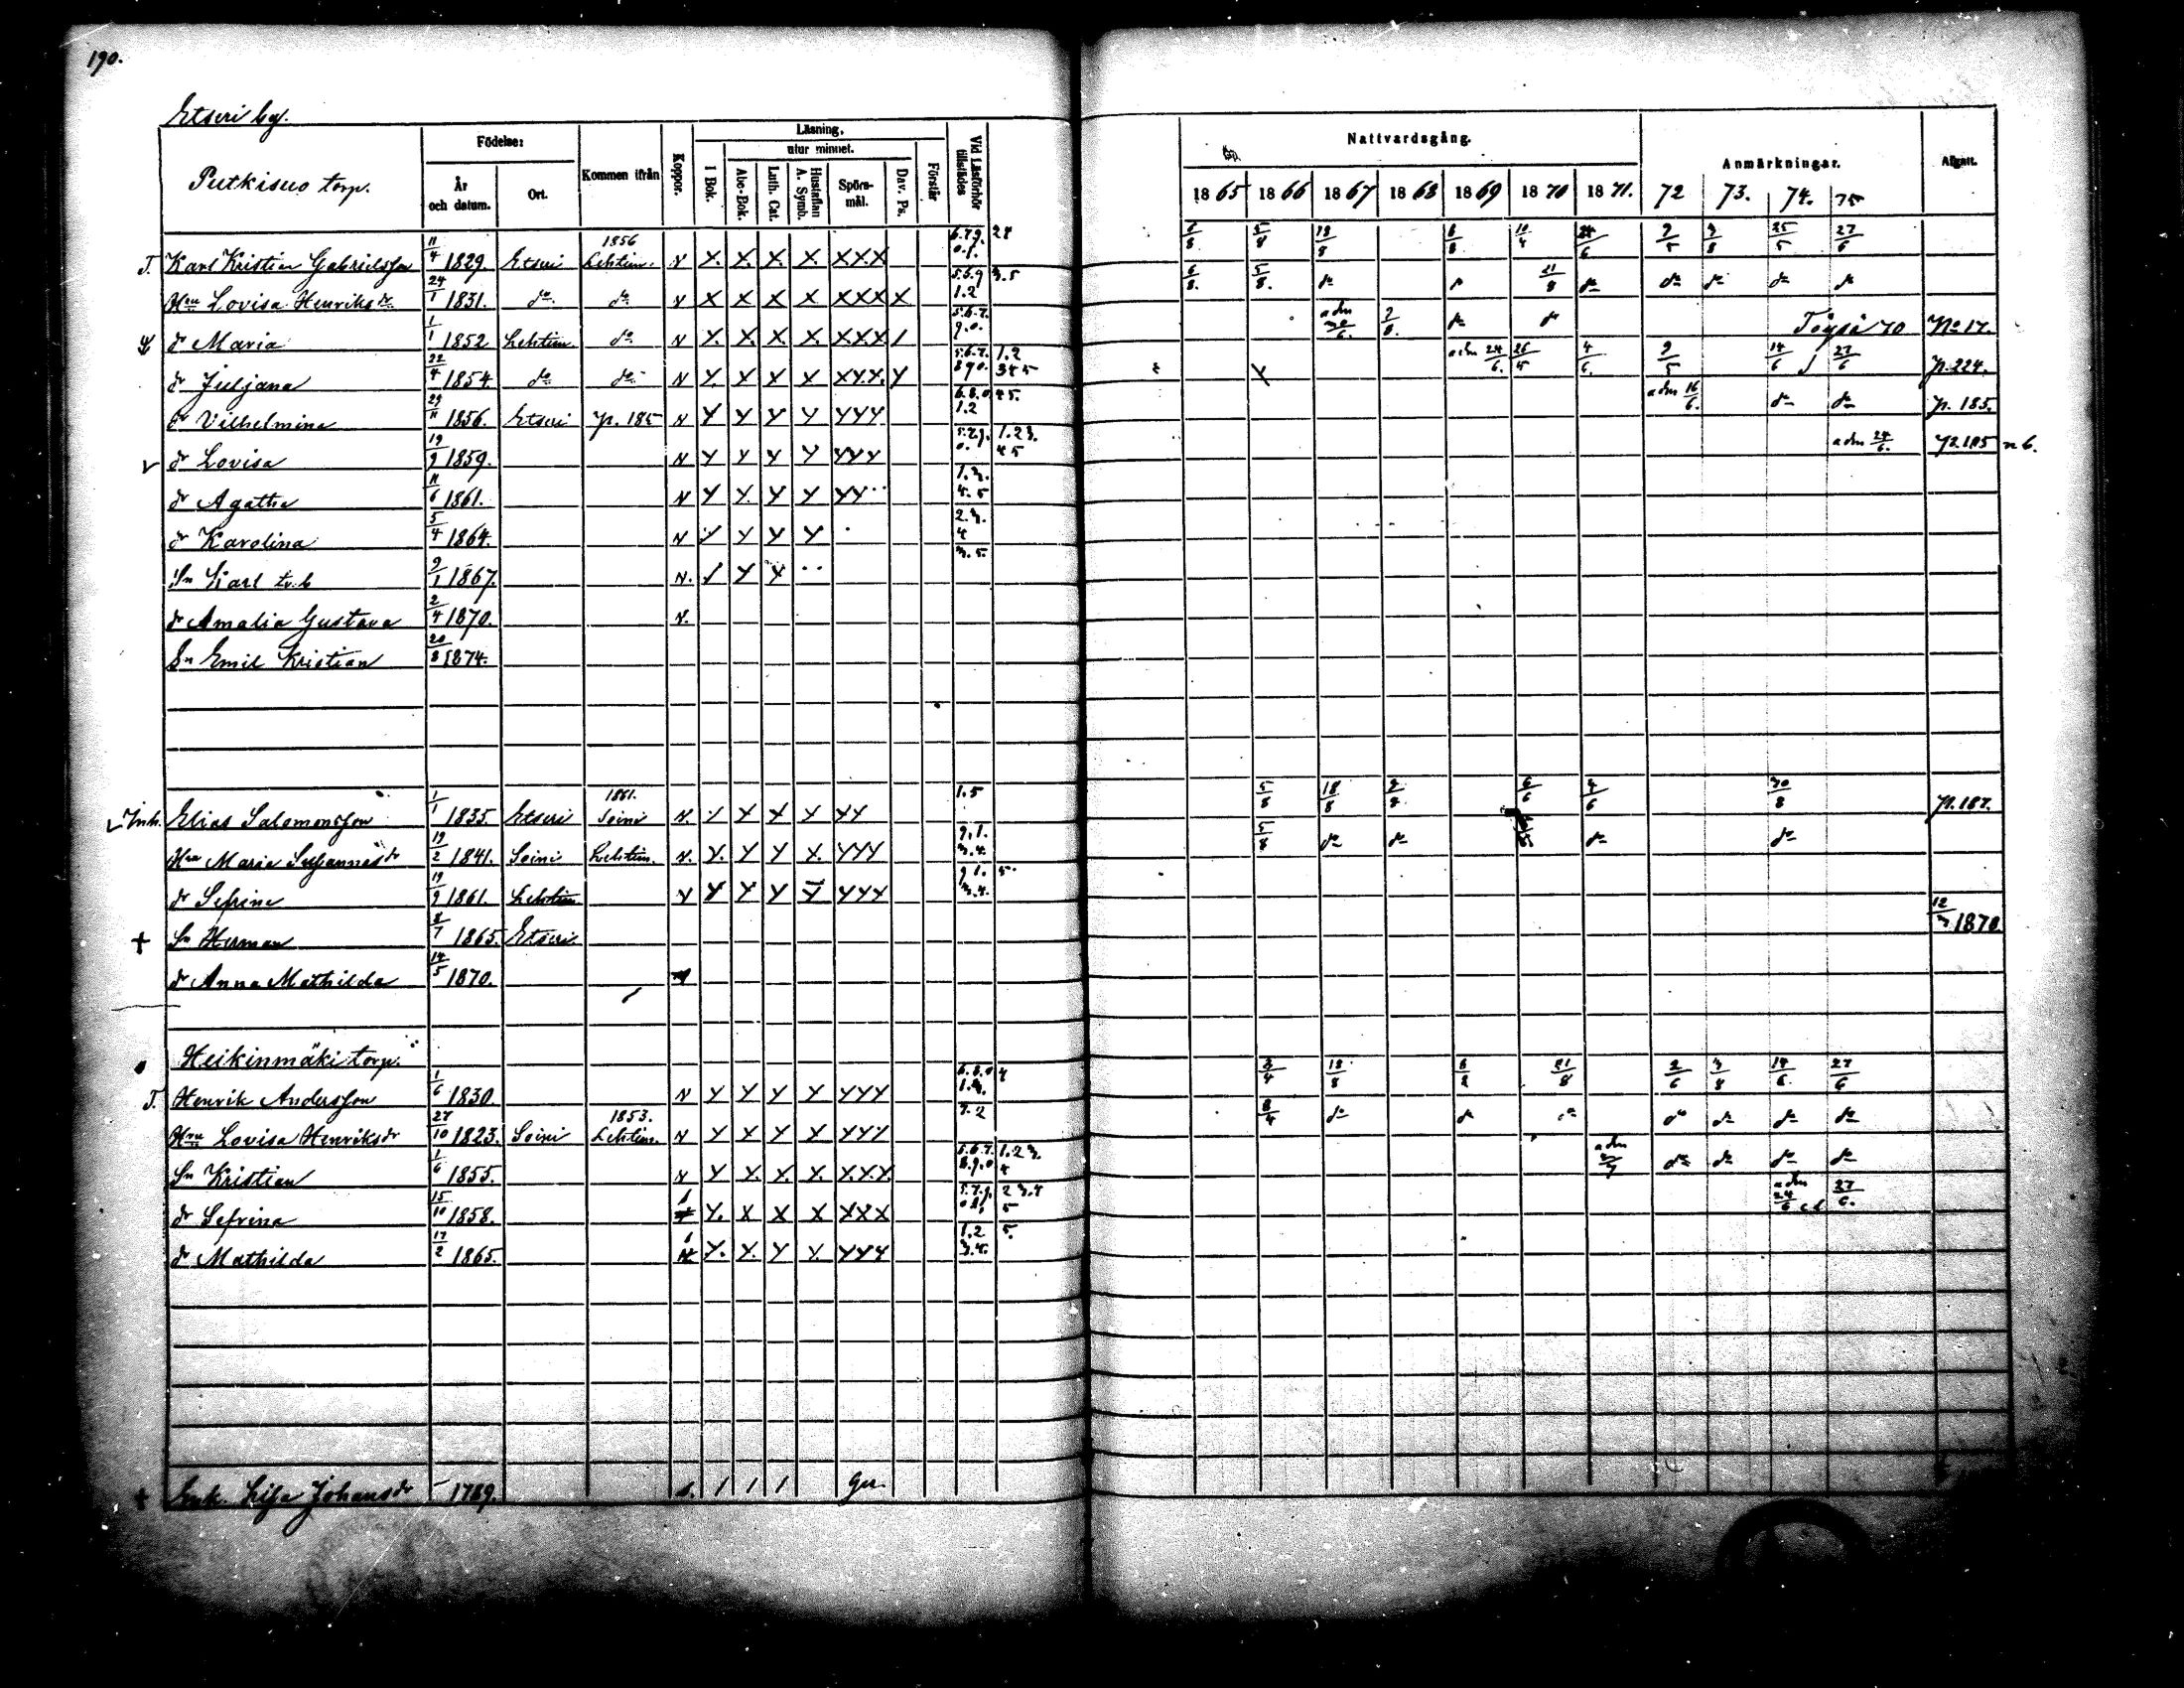 190.
Etseri by.
Putkisuo torp.
Födelse:
År och datum.
Ort.
Kommen ifrån
Koppor.
Läsning,
I Bok.
utur minnet.
Abc-Bok.
Luth. Cat.
Hustaflan A. Symb.
Spörs-mål.
Dav. Ps.
Förstår
Vid Läsförhör tillstädes
Nattvardsgång.
Anmärkningar.
Afgått.
1865 1866 1867 1868 1869 1870 1871. 72 73. 74. 75
T. Karl Kristian Gabrielsson 11/4 1829. Etseri 1856 Lehtim. N X. X. X. X. XXX 6.7.9. 0.1. 24 6/8 5/8 18/8 8/8 10/4 24/6 9/5 3/8 25/5 27/6
Hru Lovisa Henriksdr 24/1 1831. do do N X X X X XXX X 5.6.9 1.2 3.5 6/8. 5/8. do 21/8 do do do do do
dr Maria 1/1 1852 Lehtim. do N X. X. X. X. XXX / 5.6.7. 9.0. adm 30/6. do do Töysä 70 No 17.
dr Juljana 22/4 1854. do do N Y. X X X XXX. Y 5.6.7. 890. 1.2 345 adm 24/6. 26/5 4/6. 9/5 14/6 27/6 p. 224.
dr Vilhelmina 29/11 1856. Etseri p. 185 N Y Y Y Y YYY 6.8.0 1.2 45. adm 16/6. do do p. 185.
dr Lovisa 19/9 1859. N Y Y Y Y YYY 5.7.9. 0. 1.23. 45 adm 24/6. p. 185 n 6.
dr Agatha 11/6 1861. N Y Y. Y Y YY 1.3. 4.5
dr Karolina 5/4 1864. N Y Y Y Y 2.3. 4
Sn Karl 9/1 1867. N. / Y Y 3.5.
dr Amalia Gustava 2/4 1870. N.
Sn Emil Kristian 20/8 1874.
Inh. Elias Salomonsson 1/1 1835. Etseri 1861. Soini N. Y Y Y Y YY 1.5 5/8 18/8 2/8 6/6 4/6 30/8 p. 187.
Hru Maria 19/2 1841. Soini Lehtim. N. Y. Y Y X. YYY 9.1. 3.4. 5/8 do do do do
dr Sefrina 19/9 1861. Lehtim Y Y Y Y Y YYY 9.1. 3.4. 5.
+ Sn Herman 8/7 1865. Etseri 12/3 1870.
dr Anna Mathilda 14/5 1870.
Heikinmäki torp.
T. Henrik Andersson 1/6 1830. N Y Y Y Y YYY 6.8.0 1.3. 4 3/4 18/8 8/8 21/8 2/6 3/8 14/6. 27/6
Hru Lovisa Henriksdr 27/10 1823. Soini 1853. Lehtim. N Y Y Y Y YYY 7.2 3/4 do do do do do do do
Sn Kristian 1/6 1855. N Y X. X. X. X.X.X. 5.6.7. 8.9.0 1.23. 4 adm do do do do
dr Sefrina 15/10 1858. Y. X X X XXX 5.7.9. 01. 23.4 5 adm 24/6 27/6.
dr Mathilda 17/2 1865. Y. Y. Y Y. YYY 1.2 3.4. 5.
+ Enk. Lisa Johansdr 1789. / / / /